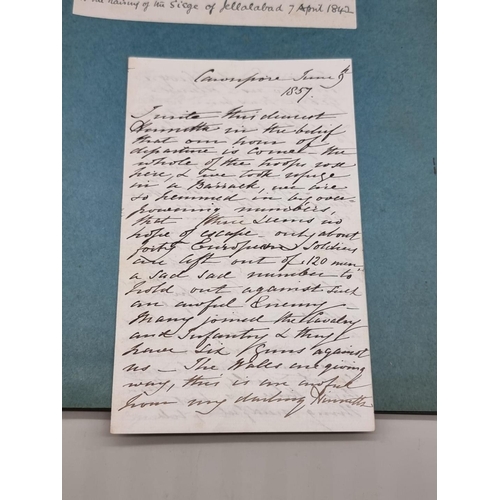 the raising of the Siege of Jellalabad 7 April 1842
Cawnpore June 9th
1857.
I write this dearest
Henrietta in the belief
that our hour of
departure is come - the
whole of the troops rose
here & we took refuge
in a Barrack, we are
so hemmed in by over-
powering numbers,
that there seems no
hope of escape only about
forty European Soldiers
are left out of 120 men
a sad sad number to
hold out against such
an awful Enemy -
Many joined the Cavalry
and Infantry & they
have six Guns against
us - The Walls are giving
way, this is an awful
hour my darling Henrietta